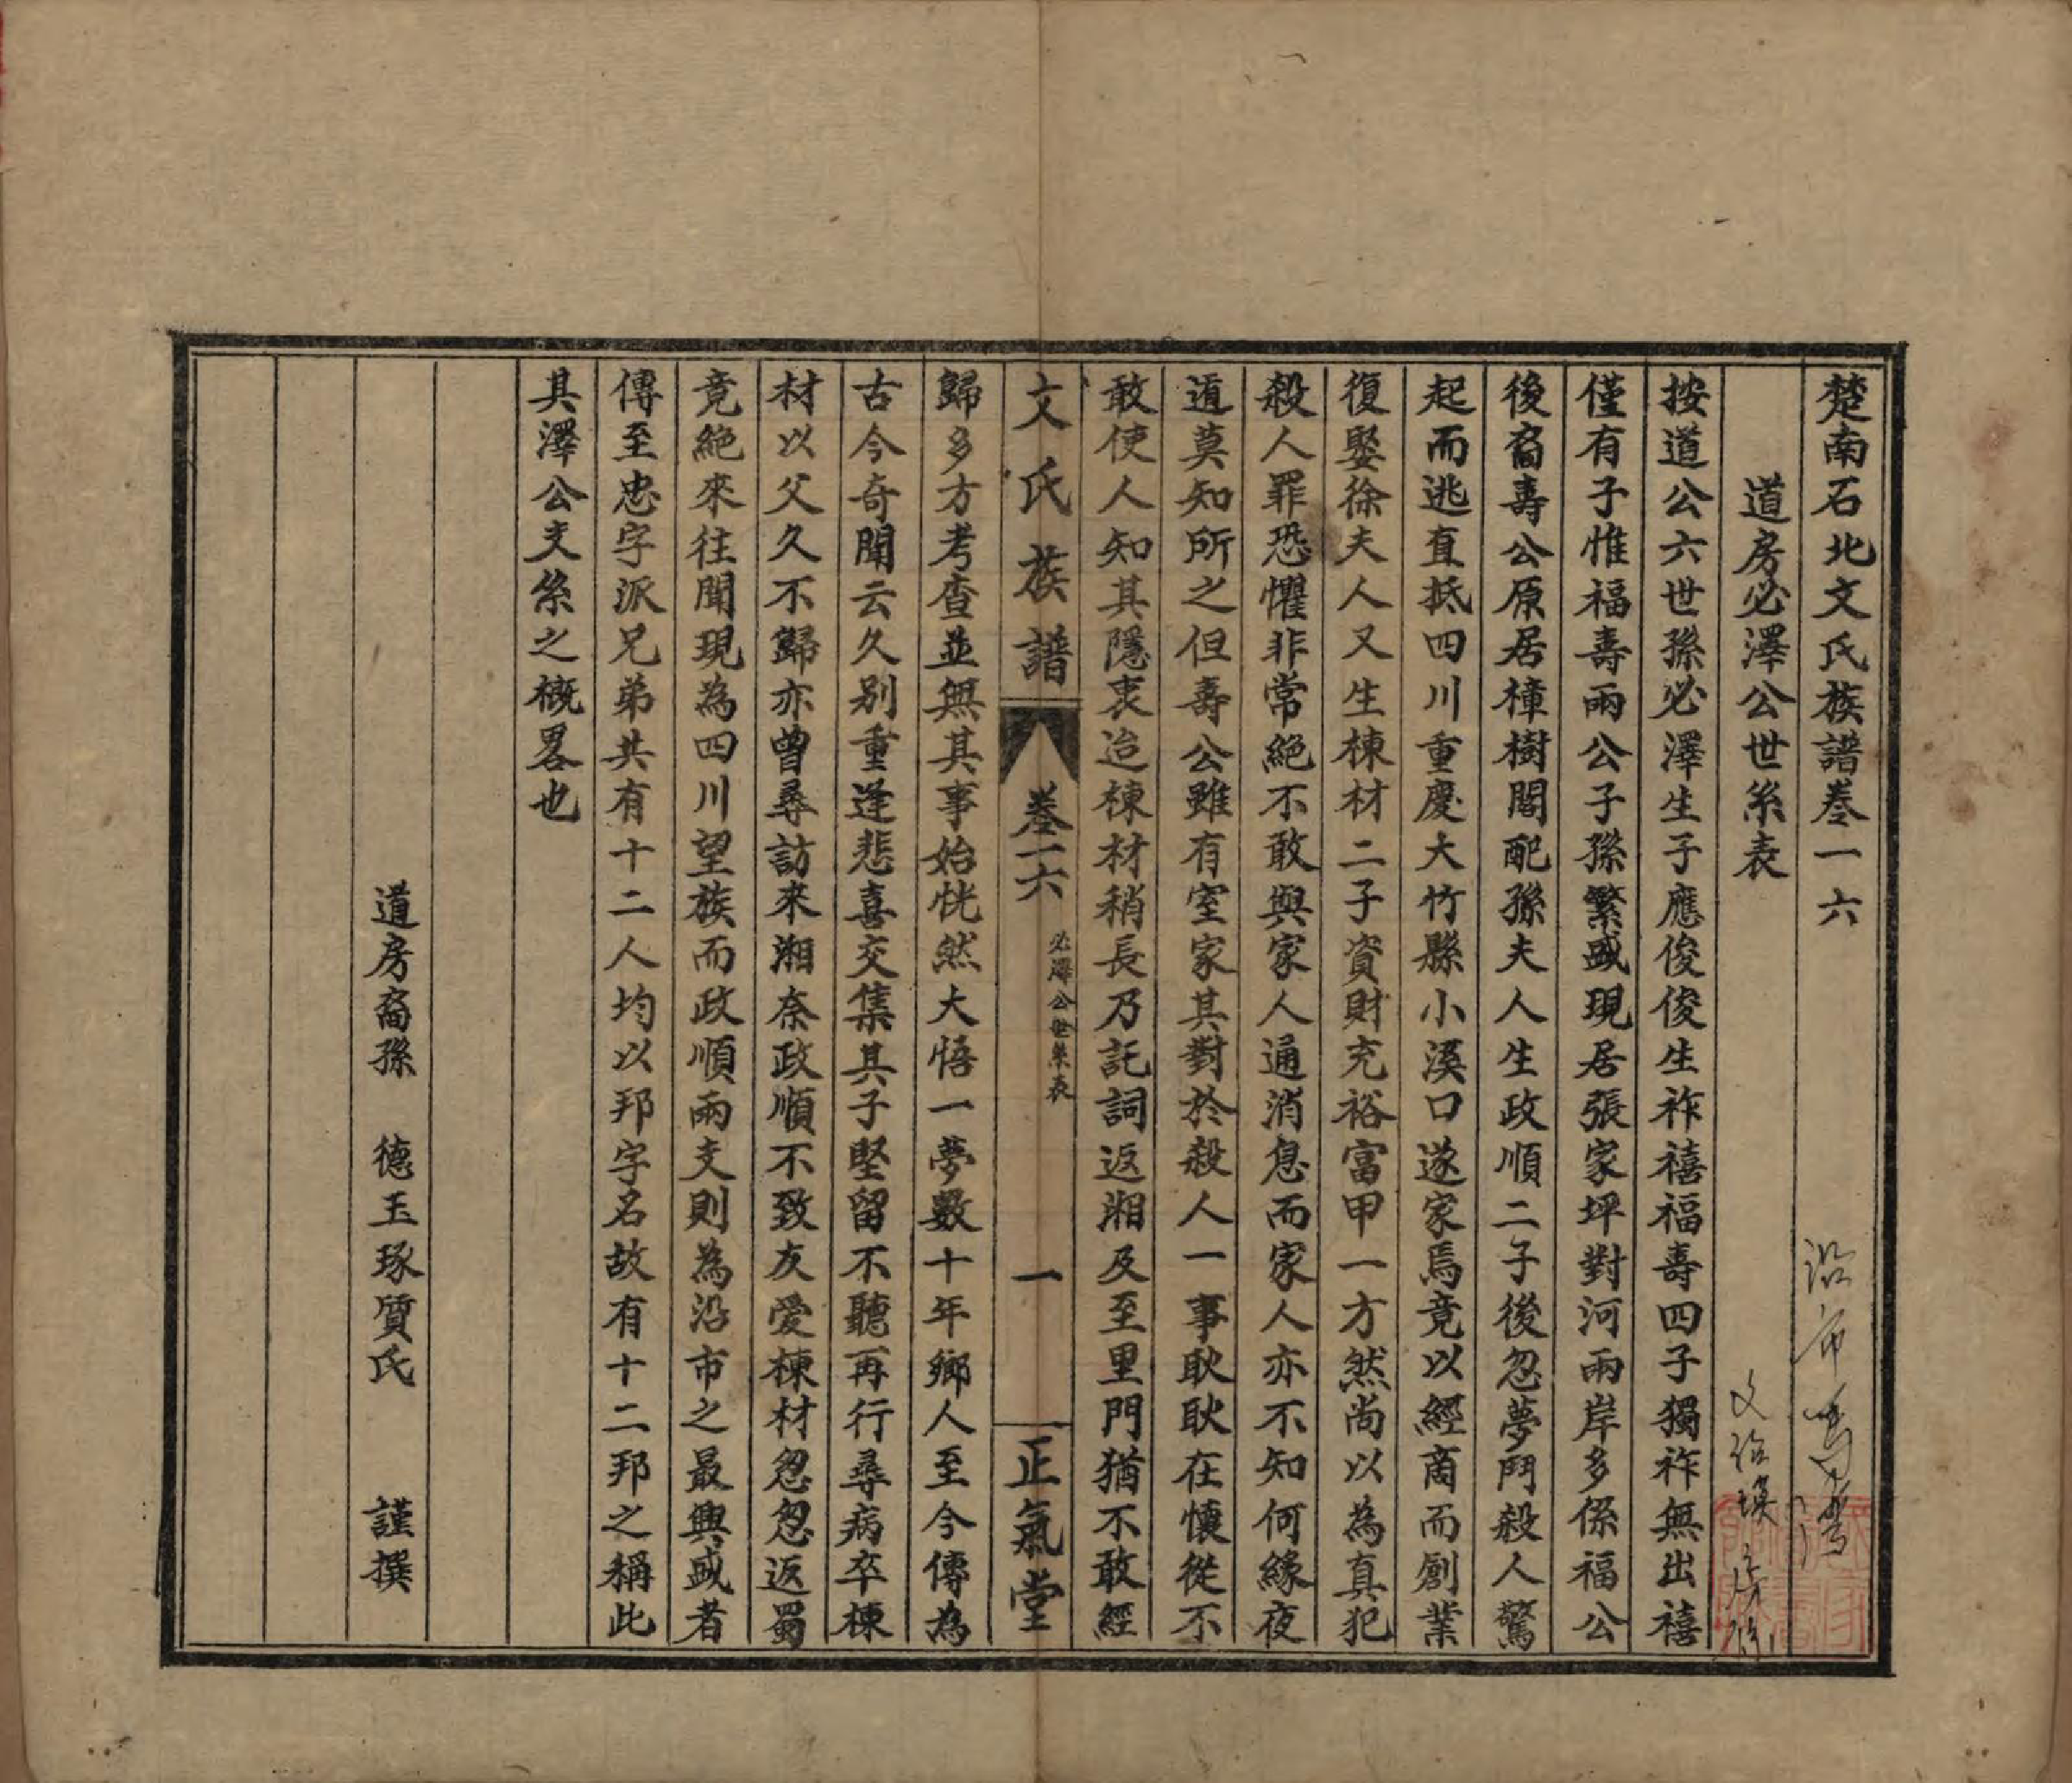 楚南石北文氏族譜卷一六
道房必澤公世系表
按道公六世孫必澤生子應俊俊生祚禧福壽四子獨祚無出禧
僅有子惟福壽兩公子孫繁盛現居張家坪對河兩岸多係福公
後裔壽公原居樟樹閣配孫夫人生政順二子後忽夢鬥殺人驚
起而逃直抵四川重慶大竹縣小溪口遂家焉竟以經商而創業
復娶徐夫人又生棟材二子資財充裕富甲一方然尚以為真犯
殺人罪恐懼非常絕不敢與家人通消息而家人亦不知何緣夜
遁莫知所之但壽公雖有室家其對於殺人一事耿耿在懷從不
敢使人知其隱衷迨棟材稍長乃託詞返湘及至里門猶不敢經
文氏族譜
卷一六
必澤公世系表
一
正氣堂
歸多方考查並無其事始恍然大悟一夢數十年鄉人至今傳為
古今奇聞云久別重逢悲喜交集其子堅留不聽再行尋病卒棟
材以父久不歸亦曾尋訪來湘奈政順不致友愛棟材忽忽返蜀
竟絕來往聞現為四川望族而政順兩支則為沿市之最興盛者
傳至忠字派兄弟共有十二人均以邦字名故有十二邦之稱此
其澤公支系之概畧也
道房裔孫 德玉琢質氏 謹撰